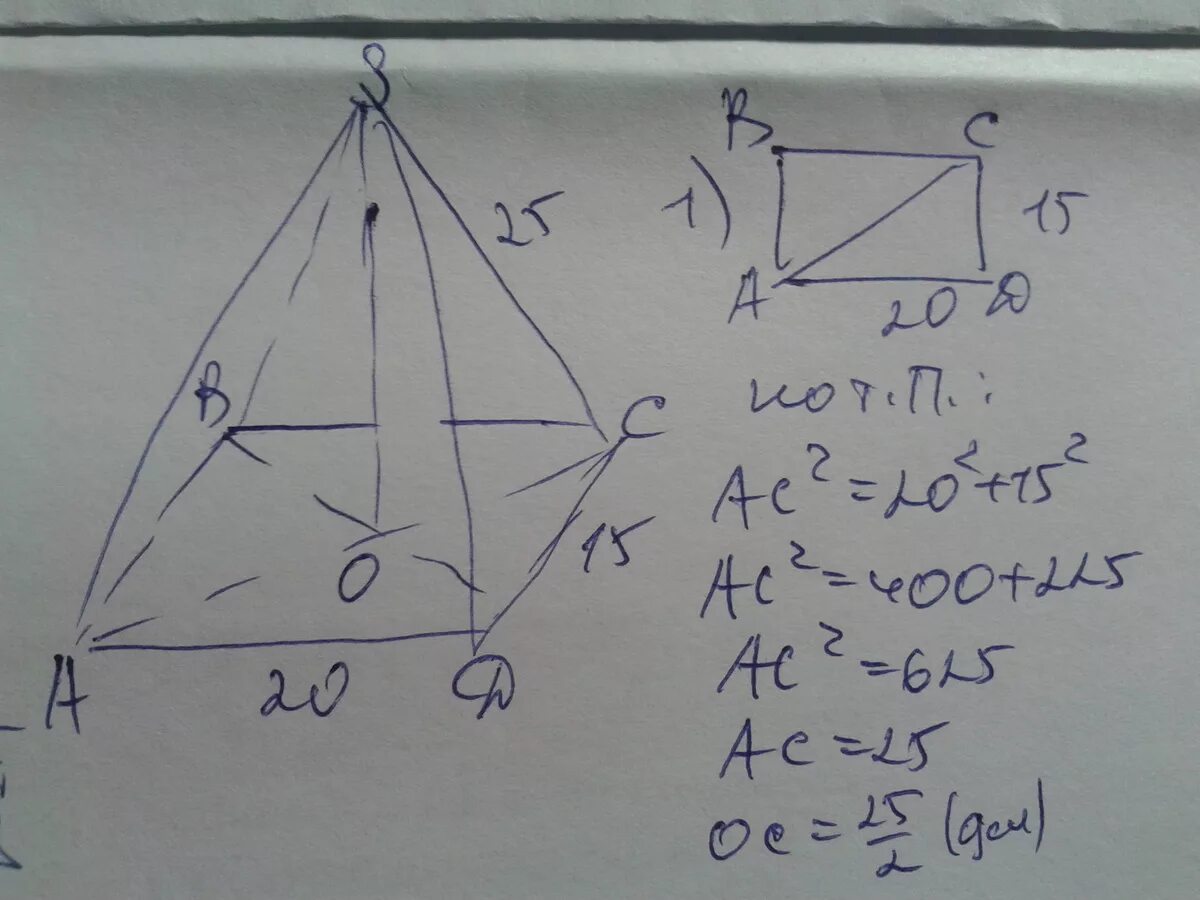 S
25
B
C
15
O
A
20
D
1)
B
C
15
A
20
D
по т. П. :
AC² = 20² + 15²
AC² = 400 + 225
AC² = 625
AC = 25
OC = 25/2 (дм)